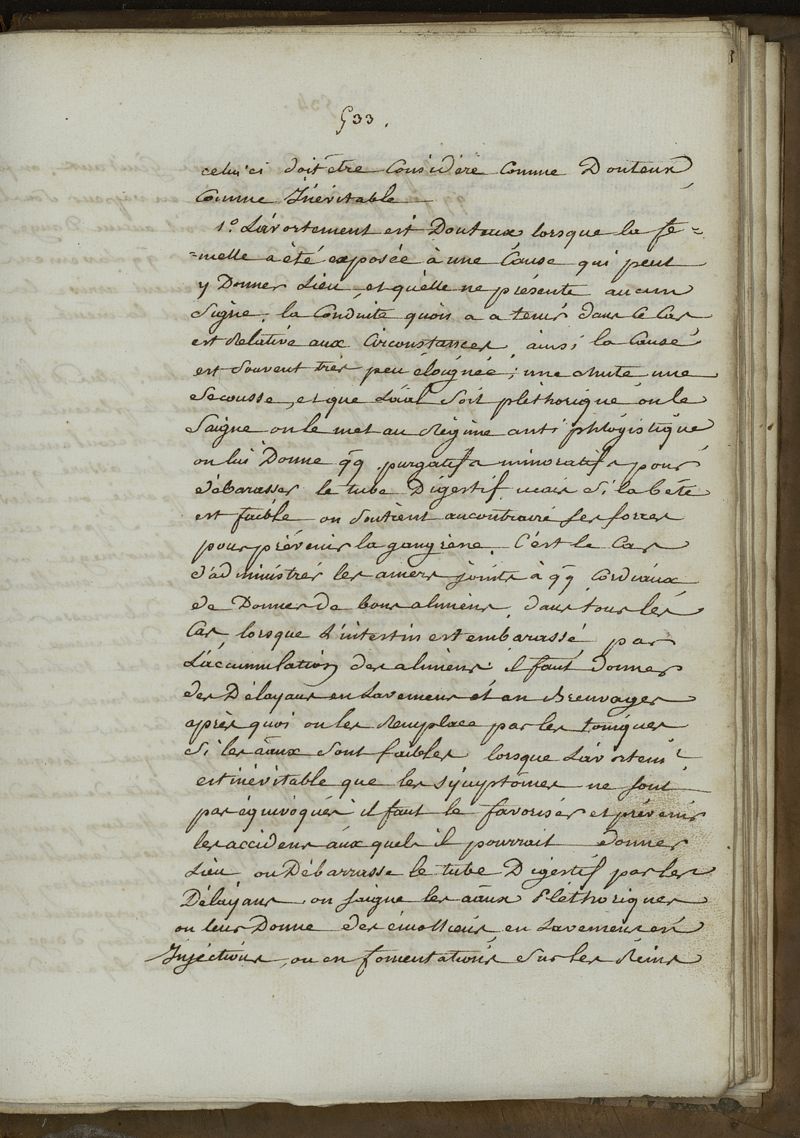 533.
celui ci doit être Considéré Comme Douteux
Comme Inévitable
1.º L'avortement est Douteux lorsque la fe-
-melle a été exposée à une Cause qui peut
y Donner Lieu, et qu'elle ne présente aucun
Signe. la Conduite qu'on a a tenir dans le Cas
est Relative aux Circonstances, ainsi la Cause
est souvent très peu éloignée; une chute une
Secousse, et que L'aâl soit pléthorique on le
Saigne on le met au Régime anti phlogistique
on lui Donne qq purgatifs minoratifs pour
débarasser le tube Digestif mais Si la bête
est faible on Soutient aucontraire ses forces
pour prévenir la gangrène. C'est le Cas
d'administrer les amers joints à qq Cordiaux
de Donner de bons alimens, dans tous les
Cas, lorsque L'intestin est embarassé par
L'accumulation des alimens il faut donner
des Délayans en Lavemens et en Breuvages
après quoi on les Remplace par les toniques
Si les aâux Sont faibles, lorsque L'avortemt
est inévitable que les Symptômes ne sont
pas équivoques il faut le favoriser et prévenir
les accidens aux quels il pourrait donner
Lieu on Débarrasse le tube Digestif par les
Délayans, on saigne les aâux Pléthoriques
on leur Donne des émolliens, en Lavemens en
Injections, ou en fomentations Sur les Reins